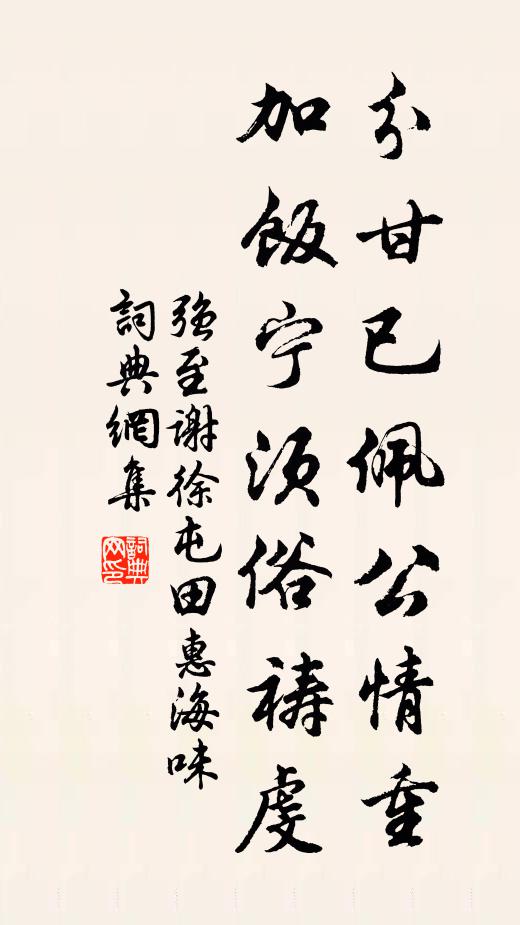 分甘已佩公情重
加飯宁須俗祷虔
强至谢徐屯田惠海味
詞典網集
詞典網印